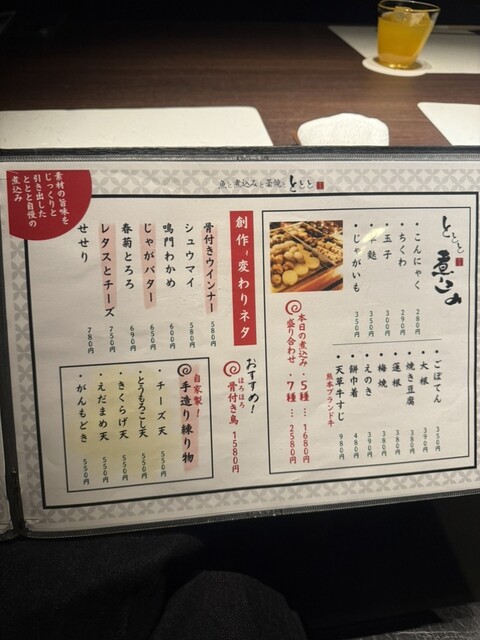 魚と煮込みと釜焼 ととと
ととと 煮込み
・こんにゃく 280円
・ちくわ 290円
・玉子 300円
・車麩 350円
・じゃがいも 350円
・ごぼてん 350円
・大根 390円
・焼き豆腐 380円
・蓮根 380円
・梅焼 380円
・えのき 390円
・餅巾着 480円
熊本ブランド牛
・天草牛すじ 980円
本日の煮込み盛り合わせ
・5種… 1680円
・7種… 2580円
創作・変わりネタ
骨付きウインナー 580円
シュウマイ 580円
鳴門わかめ 600円
じゃがバター 650円
春菊とろろ 690円
レタスとチーズ 750円
せせり 780円
おすすめ!
ほろほろ
骨付き鳥 1580円
自家製!
手造り練り物
・チーズ天 550円
・とうもろこし天 550円
・きくらげ天 550円
・えだまめ天 550円
・がんもどき 550円
素材の旨味を
じっくりと
引き出した
ととと自慢の
煮込み